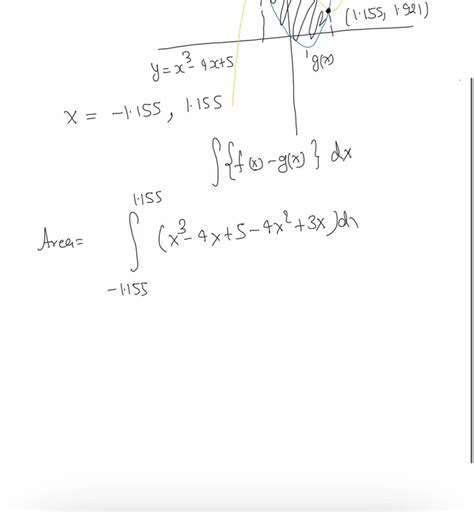 (1.155, 1.921)
y = x³ - 4x+5
g(x)
x = -1.155 , 1.155
∫{f(x) - g(x)} dx
Area = ∫_{-1.155}^{1.155} (x³ - 4x + 5 - 4x² + 3x) dx